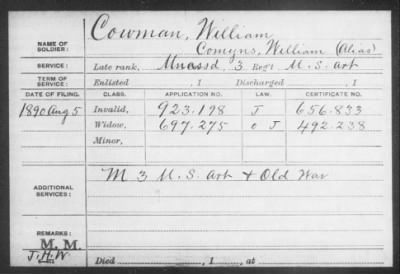 Cowman, William
NAME OF SOLDIER: Comyns, William (Alias)
SERVICE: Late rank, Mnassd, 3 Reg't U.S. Art
TERM OF SERVICE: Enlisted , 1 Discharged , 1
DATE OF FILING. CLASS. APPLICATION NO. LAW. CERTIFICATE NO.
1890 Aug 5 Invalid, 923.198 J 656.833
Widow, 697.275 o J 492.238
Minor,
ADDITIONAL SERVICES: M 3 U.S. Art & Old War
REMARKS:
M. M.
J.H.W. Died , 1 , at